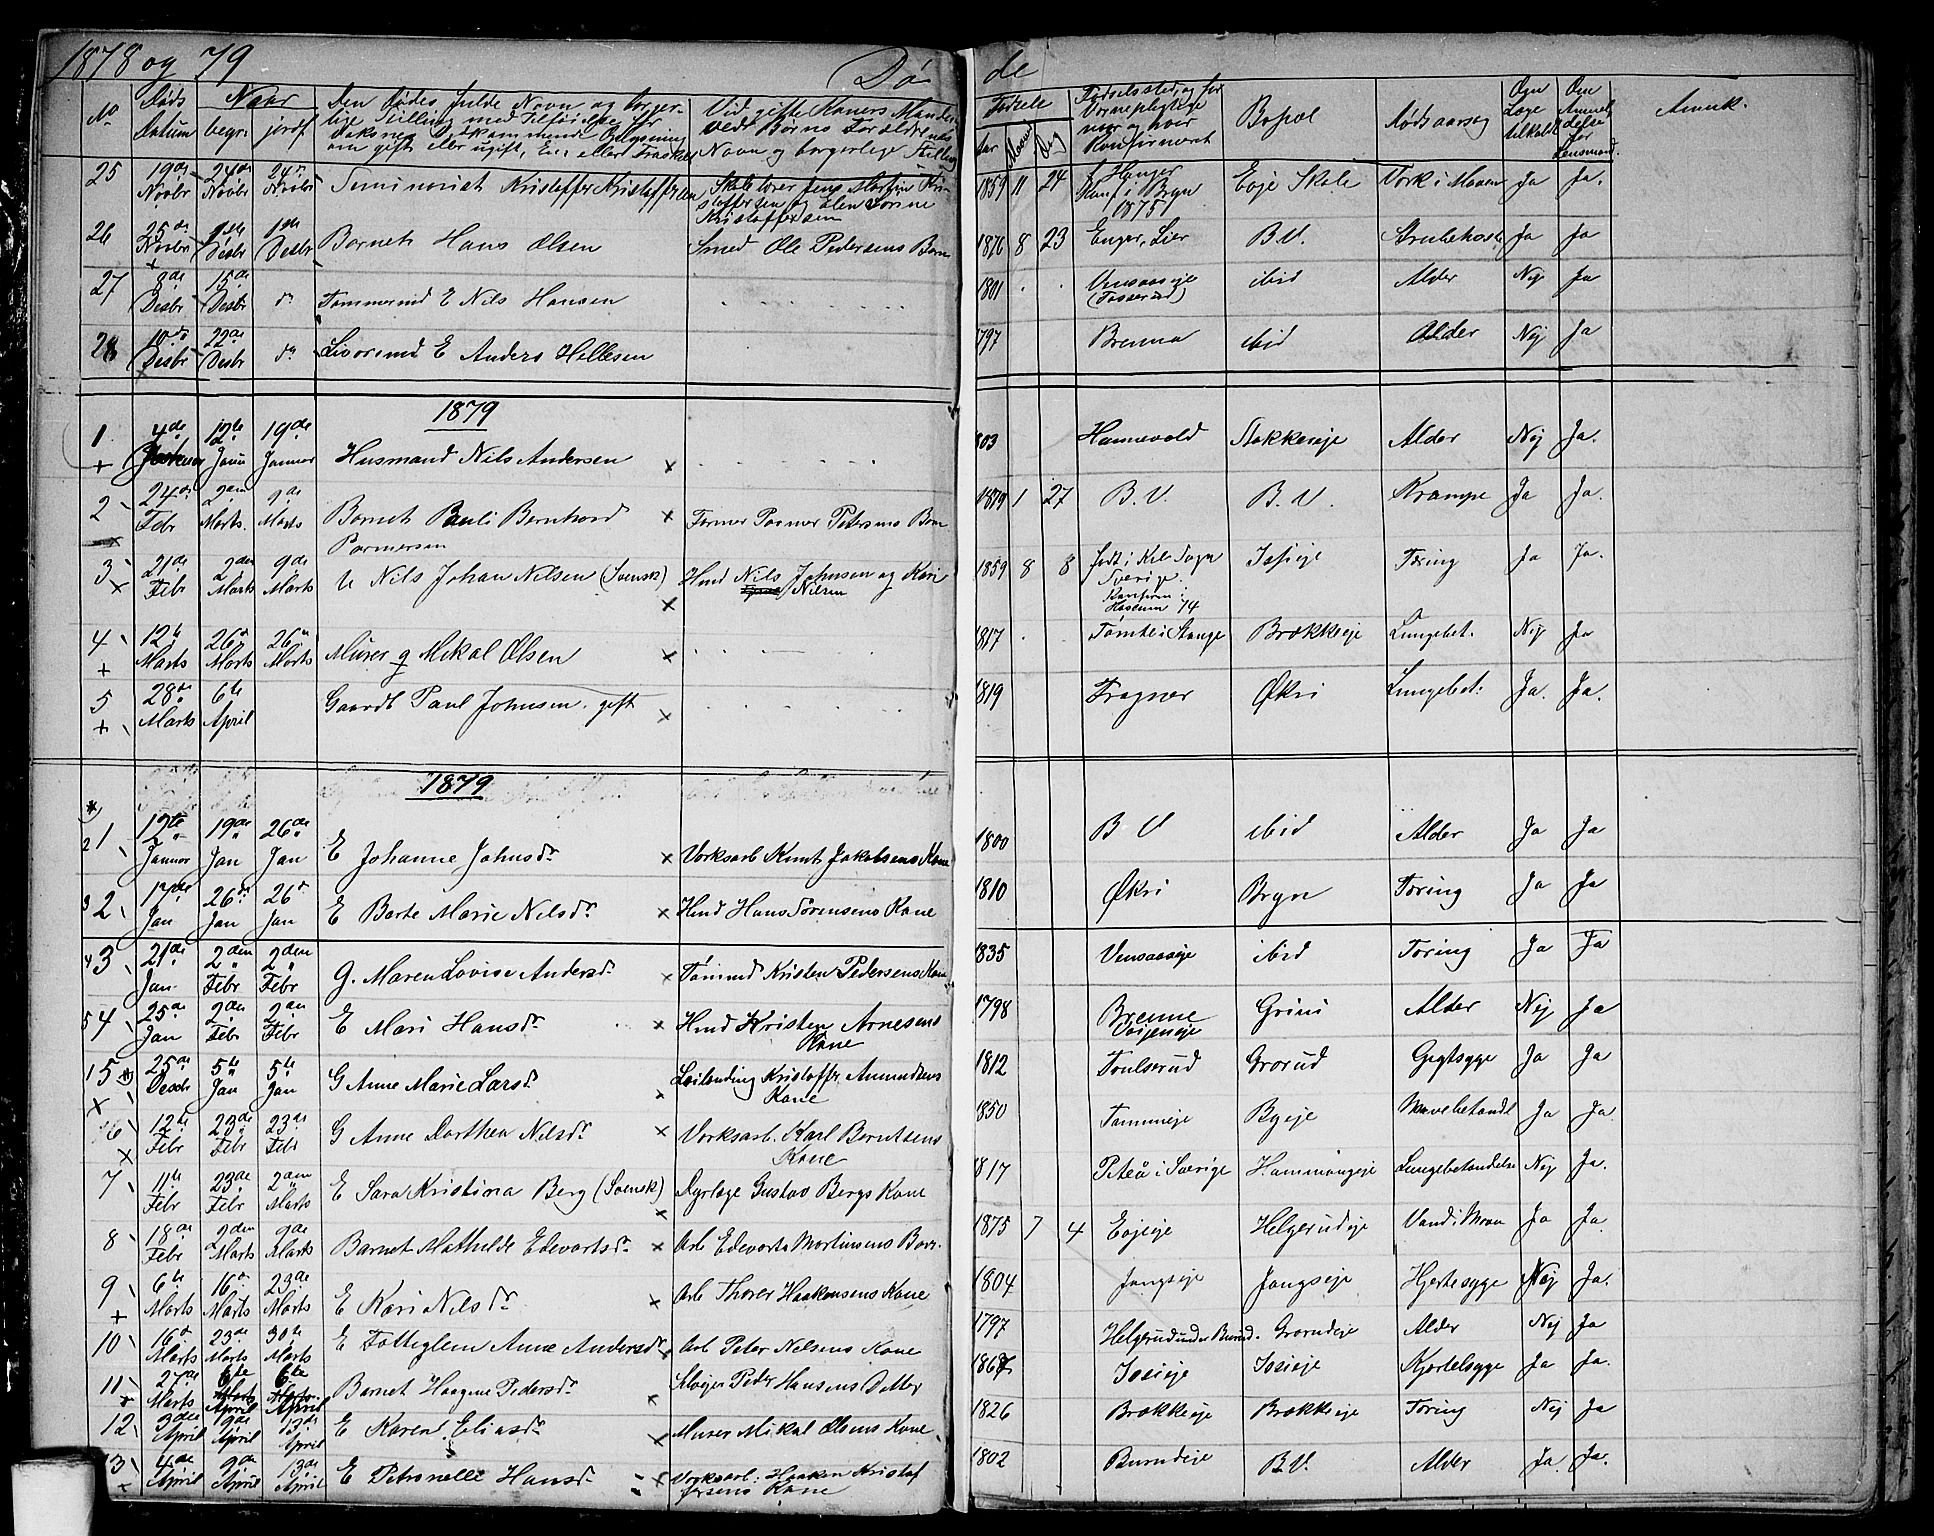 1878 og 79
Dø de
No Døds Datum Naar begr. jordf.
Den Dødes fulde Navn og borgerlige Stilling
om gift eller ugift, En. eller Frask.
Ved gifte Koners Mands
ved Børns Forældrenes
Navn og borgerlige Stilling
Fødsels Aar Maaned Dag
Fødselssted, og for Vernepligtige naar og hvor Konfirmeret
Bopæl Dødsaarsag
Om Læge tilkaldt Om Anmeldelse for Lensmand. Anmk.
25 19de Novbr 24de Novbr 24de Novbr Seminarist Kristoffer Kristoffersen Skolelærer Jens Martin Kristoffersen og Elen Sorine Kristoffersen 1859 11 24 Hanger Konf i Bryn 1875 Evje Skole Værk i Maven Ja Ja.
26 25de Novbr 1ste Desbr 1ste Desbr Barnet Hans Olsen Smed Ole Pedersens Barn 1876 8 23 Enger, Lier B.V. Strubehoste Ja Ja
27 8de Desbr 15de Desbr do Tømmermd E Nils Hansen 1801 Vensaaseje (Tosserud) ibid Alder Nej Ja
28 10de Desbr 22de Desbr do E Anders Hellesen 1797 Brenna ibid Alder Nej Ja
1879
1 4de 12te Janu 19de Januar Husmand Nils Andersen 1803 Hannevold Stokkereje Alder Nej Ja.
2 24de Febr 2den Marts. 9de Marts Barnet Pauli Bernhard Parmersen Parmer Petersens Barn 1879 1 27 B.V. B.V. Krampe Ja Ja.
3 21de Febr 2den Marts 9de Marts U Nils Johan Nilsen (Svensk) Hmd Nils Johnsen og Kari Nilsen 1859 8 8 født i Kil Sogn Sverige. Konfirm i Haslum 74 Josieje Tæring Ja Ja.
4 12te Marts 26de Marts 26de Marts Murer g Mikal Olsen 1817 Tømte i Stange Brækkeeje Lungebet. Nej Ja
5 28de Marts 6te April Gaardb Paul Johnsen, gift 1819 Fragner Økri Lungebet: Ja. Ja.
1879
1 12te Januar 19de Jan 26de Jan E Johanne Johnsdr Værksarb Knut Jakobsens Kone 1800 B V ibid Alder Ja Ja
2 17de Jan 26de Jan 26de Jan E Berte Marie Nilsdr Hmd Hans Sørensens Kone 1810 Økri Bryn Tæring Ja Ja
3 21de Jan. 2den Febr 2den Febr G. Maren Lovise Andersdr Tømmmd Kristen Pedersens Kone 1835 Vensaaseje ibid Tæring Ja Ja
4 25de Jan 2den Febr 2den Febr E Mari Hansdr Hmd Kristen Arnesens Kone 1798 Brenne Vøyeneje Grini Alder Nej Ja
5 25de Desbr 5te Jan 5te Jan G Anne Marie Larsdr Leilending Kristoffer Amundsens Kone 1812 Toulserud Grorud Gigtsyge Ja Ja
6 12te Febr 23de Febr 23de Febr G Anne Dorthea Nilsdr Værksarb. Karl Berntsens Kone 1850 Tammeje Byeje Mavebetændt Ja Ja
7 11te Febr 23de Febr 2den Marts E Sara Kristina Berg (Svensk) Dyrlæge Gustav Bergs Kone 1817 Piteå i Sverige Hammangeje Lungebetændelse Nej Ja.
8 18de Febr 2den Marts 9de Marts Barnet Mathilde Edevartsdr Arb Edevarts Martinsens Barn. 1875 7 4 Evjeeje Helgerudeje Vand i Maven Ja Ja
9 6te Marts 16de Marts 23de Marts E Kari Nilsdr Arb Thorer Haakensens Kone 1804 Jongseje Jongseje Hjertesyge Nej Ja.
10 16de Marts 23de Marts 30te Marts E Fattiglem Anne Andersdr Arb Peter Nilsens Kone 1797 Helgerud under Bærud. Grorudeje Alder Nej Ja
11 27de Marts 6te April 6te April Barnet Haagine Pedersdr Peder Hansens Datter 1867 Josieje Josieje Kjertelsyge Ja Ja
12 3die April 9de April 13de April E Karen Eliasdr Murer Mikal Olsens Kone 1826 Brækkeeje Brækkeeje Tæring Nej Ja
13 4de April 9de April 13de April E Petronelle Hansdr Værksarb. Haaken Kristoffersens Kone 1802 Burudeje B.V. Alder Ja. Ja.